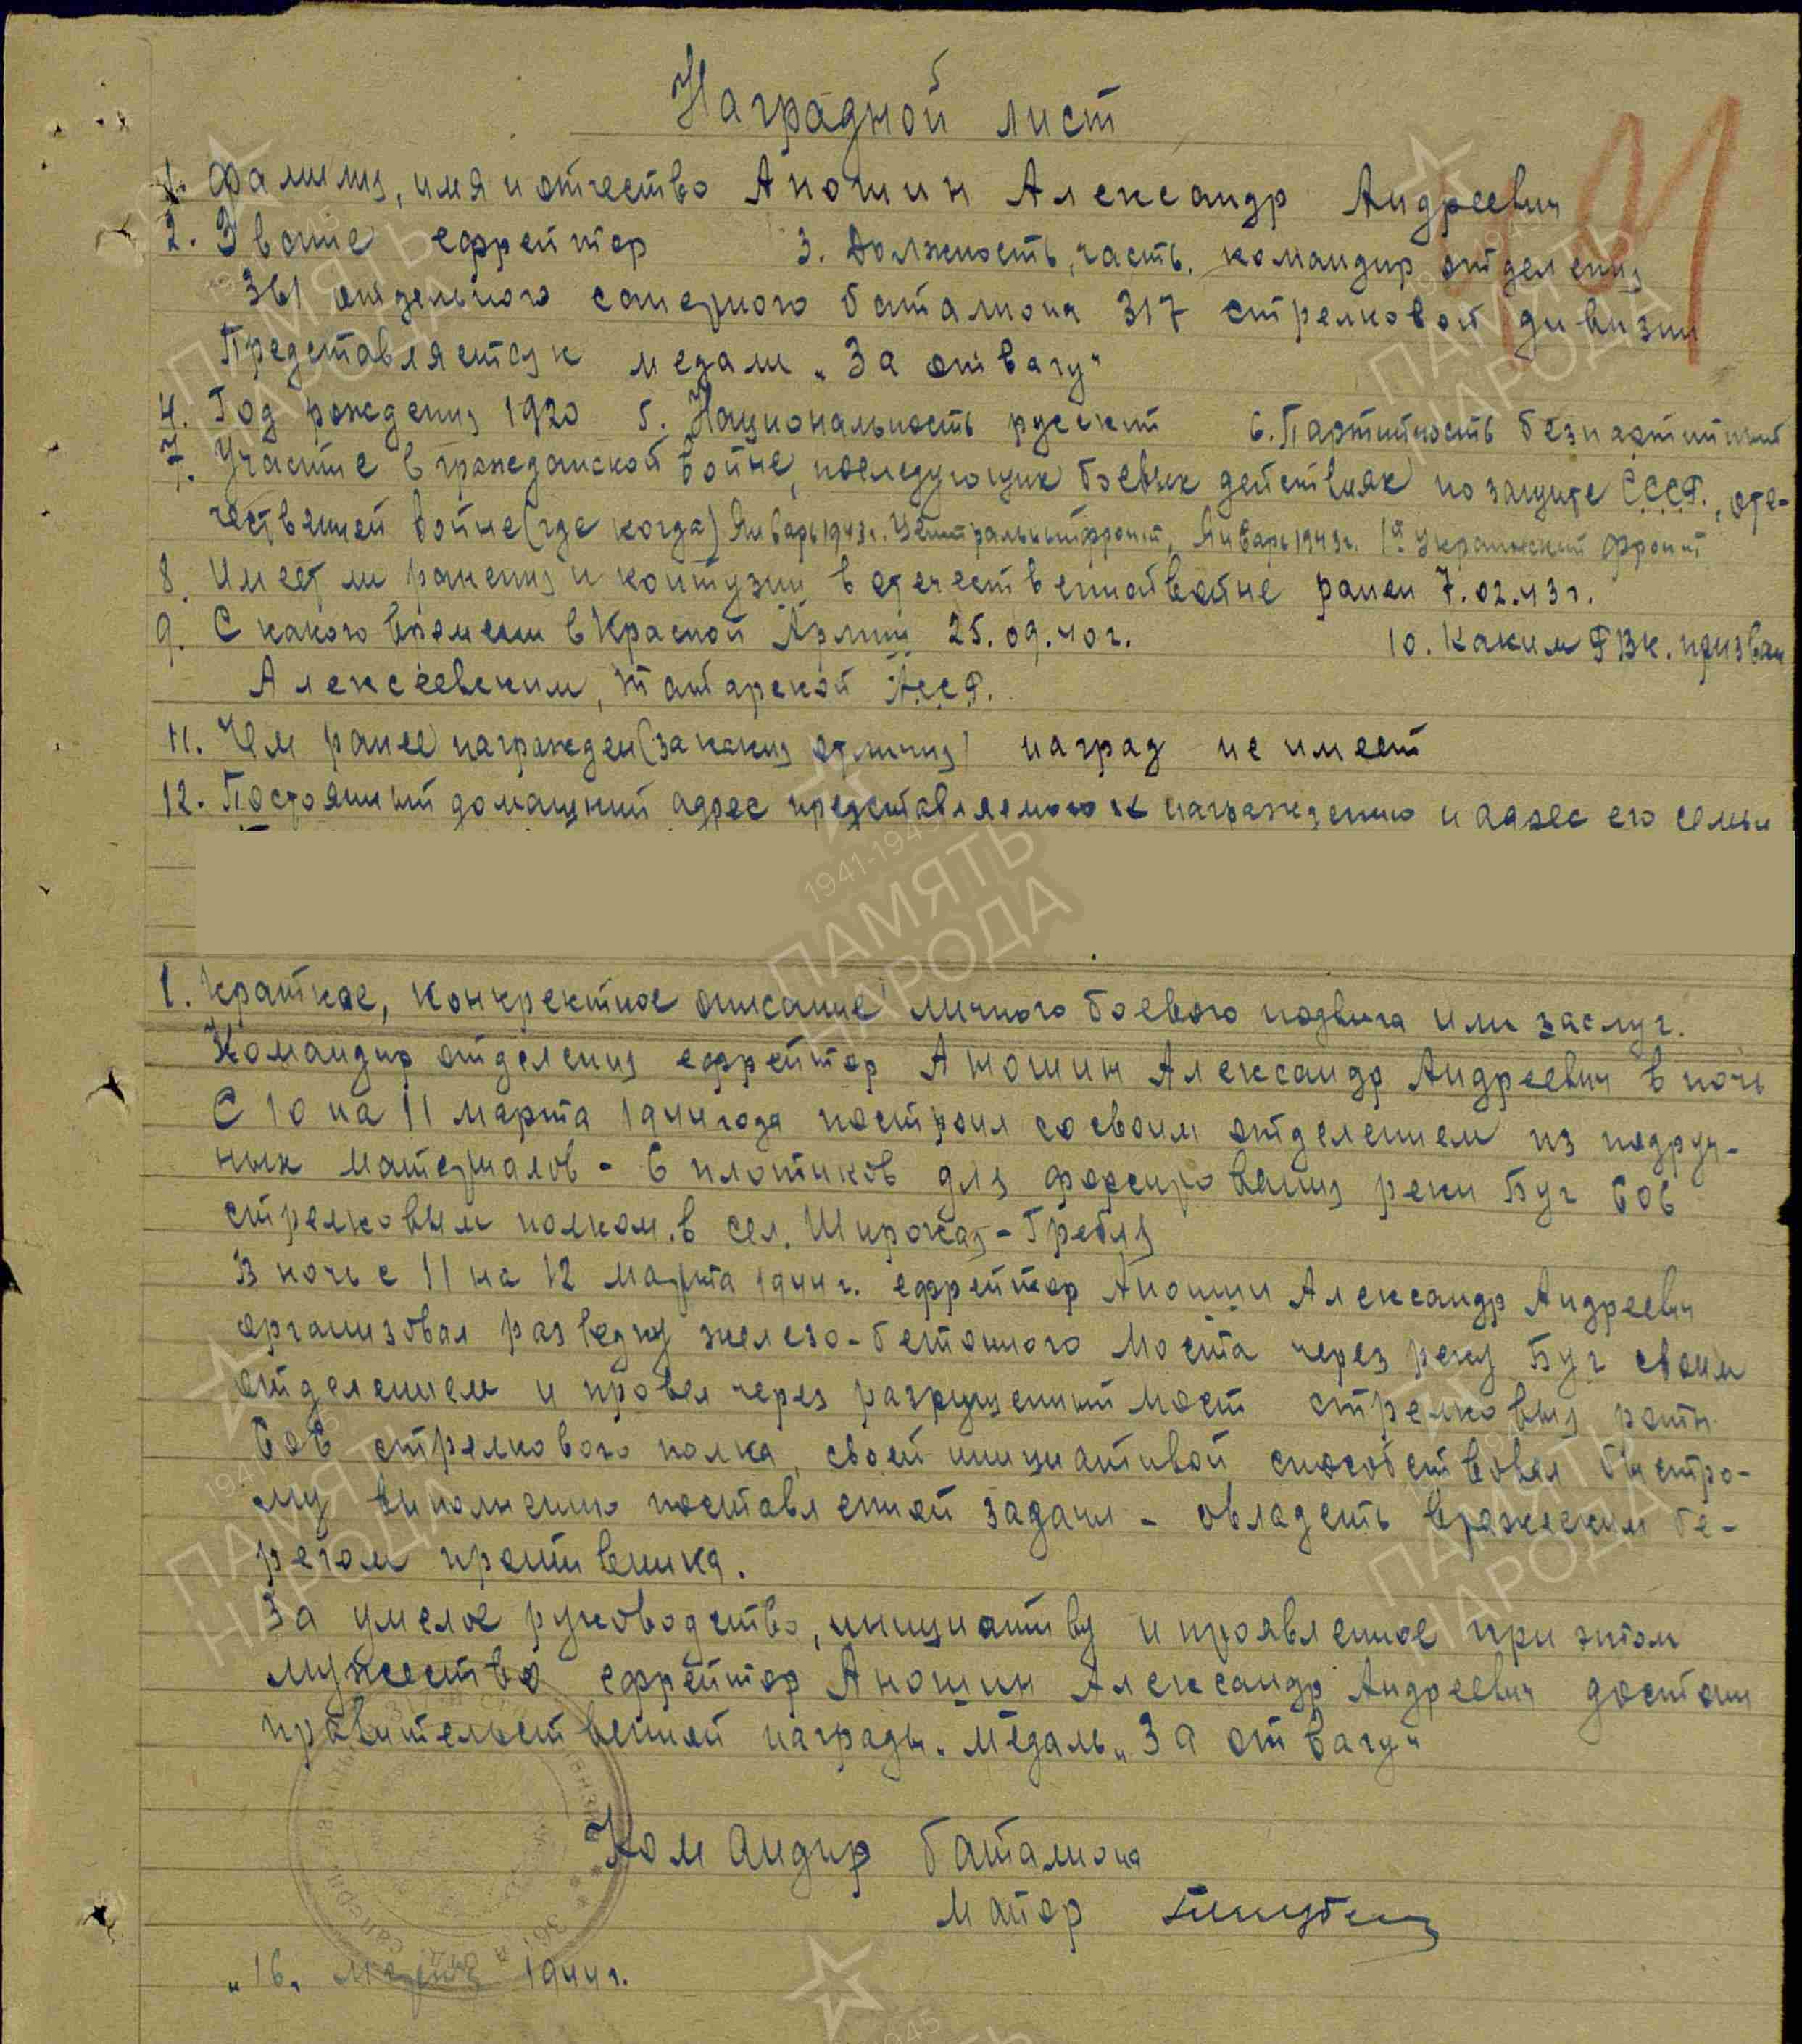 Наградной лист
1. Фамилия, имя и отчество Аношин Александр Андреевич
2. Звание ефрейтор 3. Должность, часть. командир отделения
361 отдельного саперного баталиона 317 стрелковой дивизии
Представляется к медали „За отвагу"
4. Год рождения 1920 5. Национальность русский 6. Партийность безпартийный
7. Участие в гражданской войне, последующих боевых действиях по защите СССР., оте-
чественной войне (где когда) Январь 1943г. Центральный фронт, Январь 1943г. 1й Украинский фронт
8. Имеет ли ранения и контузии в отечественной войне ранен 7.02.43г.
9. С какого времени в Красной Армии 25.09.40г. 10. Каким РВК. призван
Алексеевским, Татарской АССР.
11. Чем ранее награжден (за какия отличия) наград не имеет
12. Постоянный домашний адрес представляемого к награждению и адрес его семьи
1. Краткое, конкректное описание личного боевого подвига или заслуг.
Командир отделения ефрейтор Аношин Александр Андреевич в ночь
С 10 на 11 марта 1944 года построил со своим отделением из подруч-
ных материалов - 6 плотиков для форсирования реки Буг 606
стрелковым полком. в сел. Широкая-Гребля
В ночь с 11 на 12 марта 1944г. ефрейтор Аношин Александр Андреевич
организовал разведку железо-бетонного моста через реку Буг своим
отделением и провел через разрушенный мост стрелковыя роты
606 стрелкового полка, своей инициативой способствовал быстро-
му выполнению поставленной задачи - овладеть вражеским бе-
регом противника.
За умелое руководство, инициативу и проявленное при этом
мужество ефрейтор Аношин Александр Андреевич достоин
правительственной награды. медаль „За отвагу"
Командир баталиона
Майор
„16„ марта 1944г.
ПАМЯТЬ
НАРОДА
1941-1945